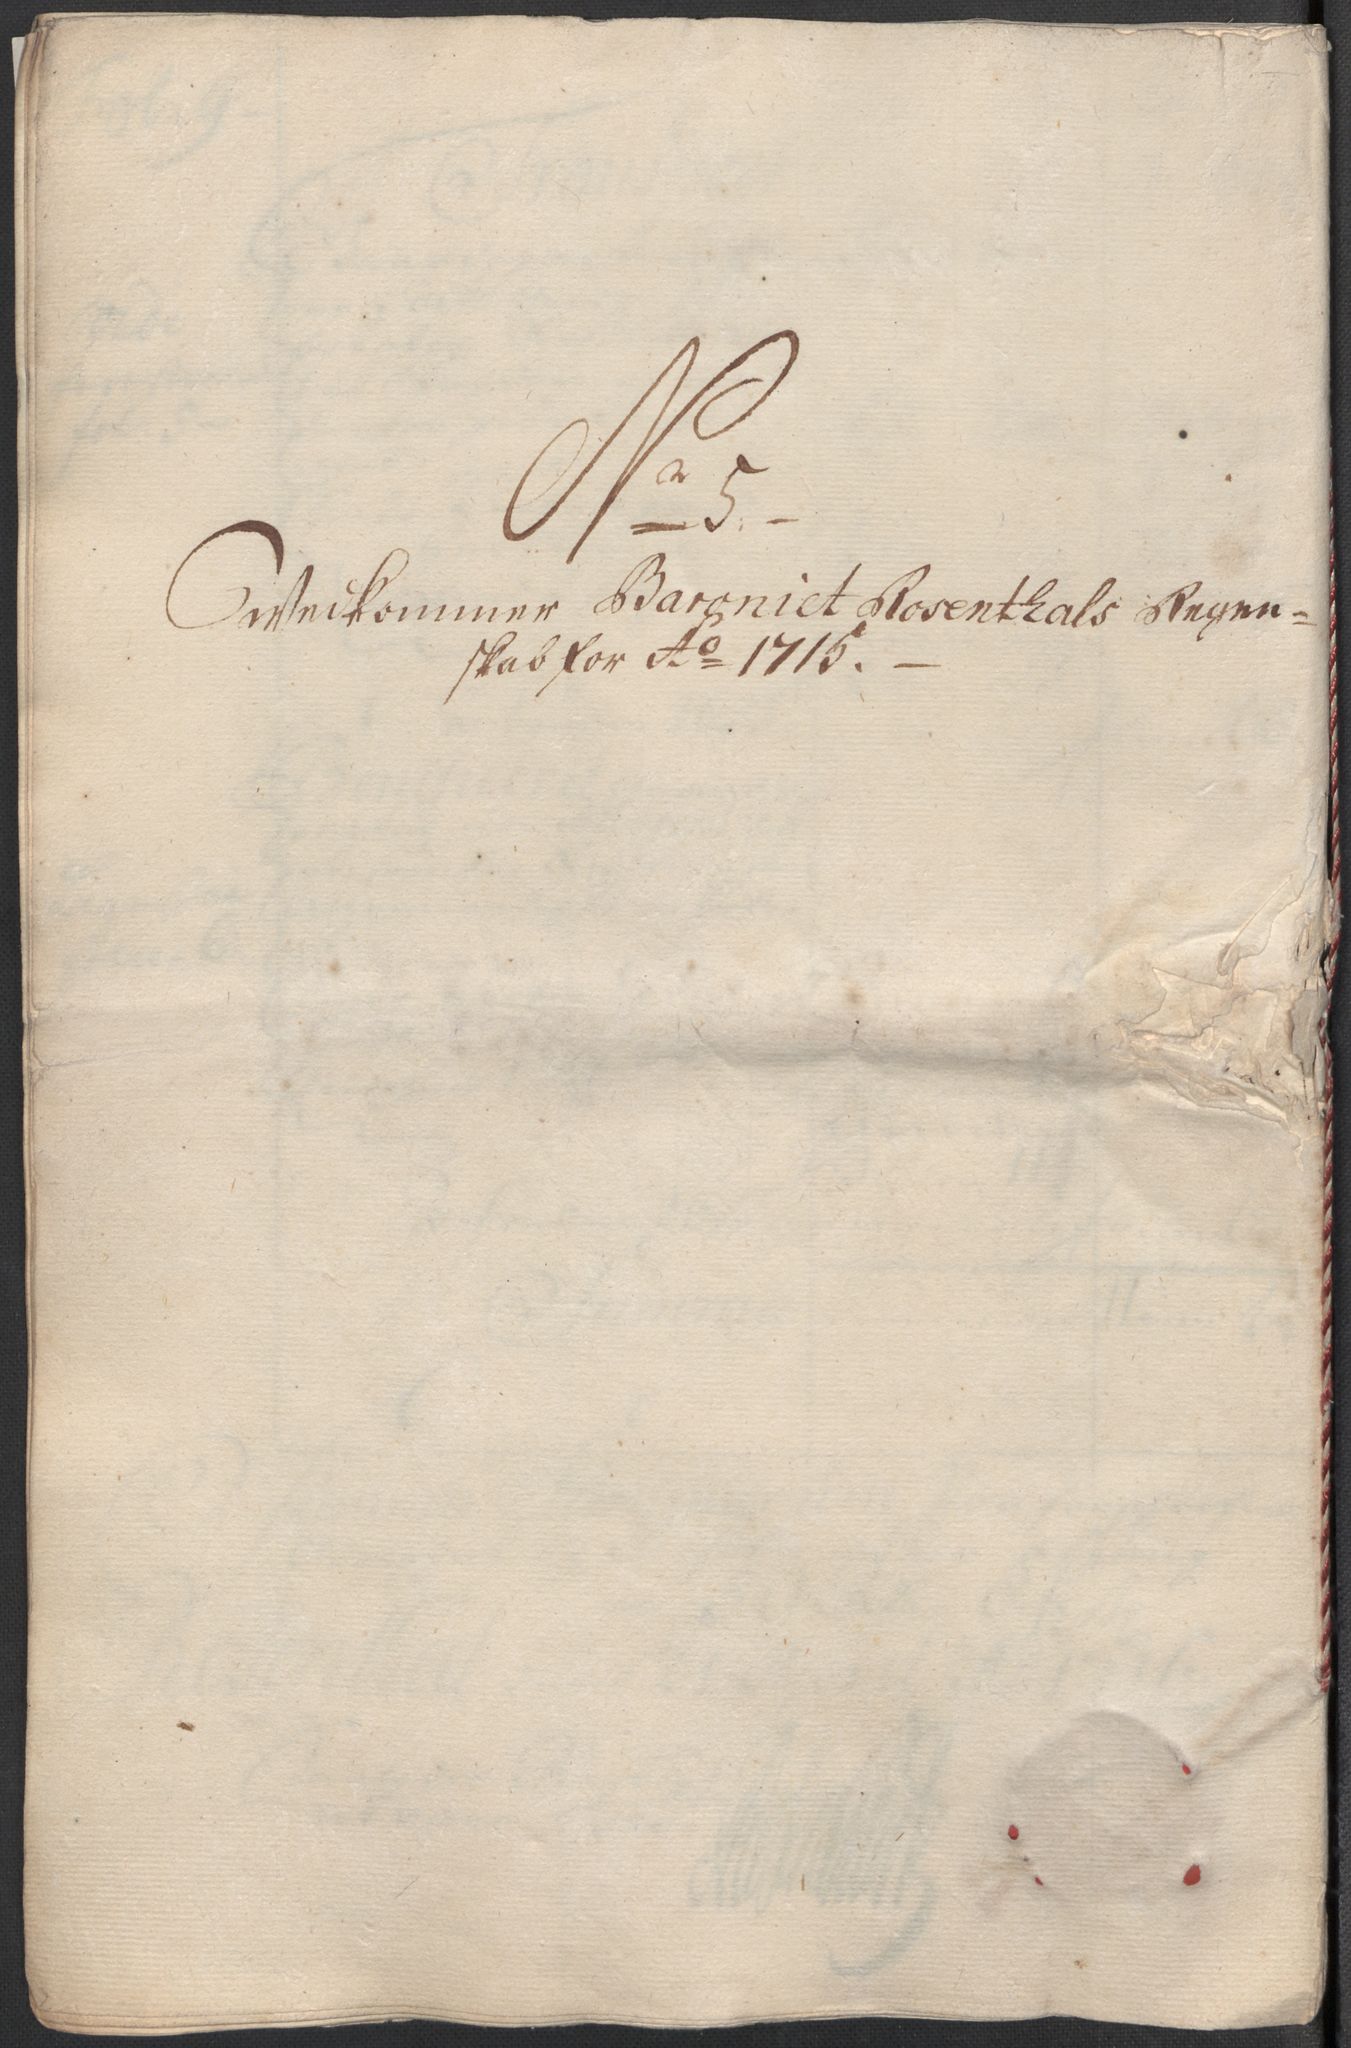 No 5. –
Vedkommer Baroniet Rosenthals Regen=
skab for Ao 1715. –